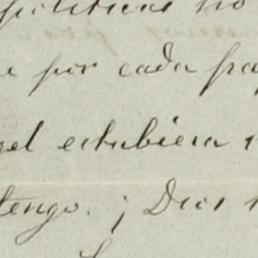 politicas no
por cada
el estubiera
tengo. ¡ Dios